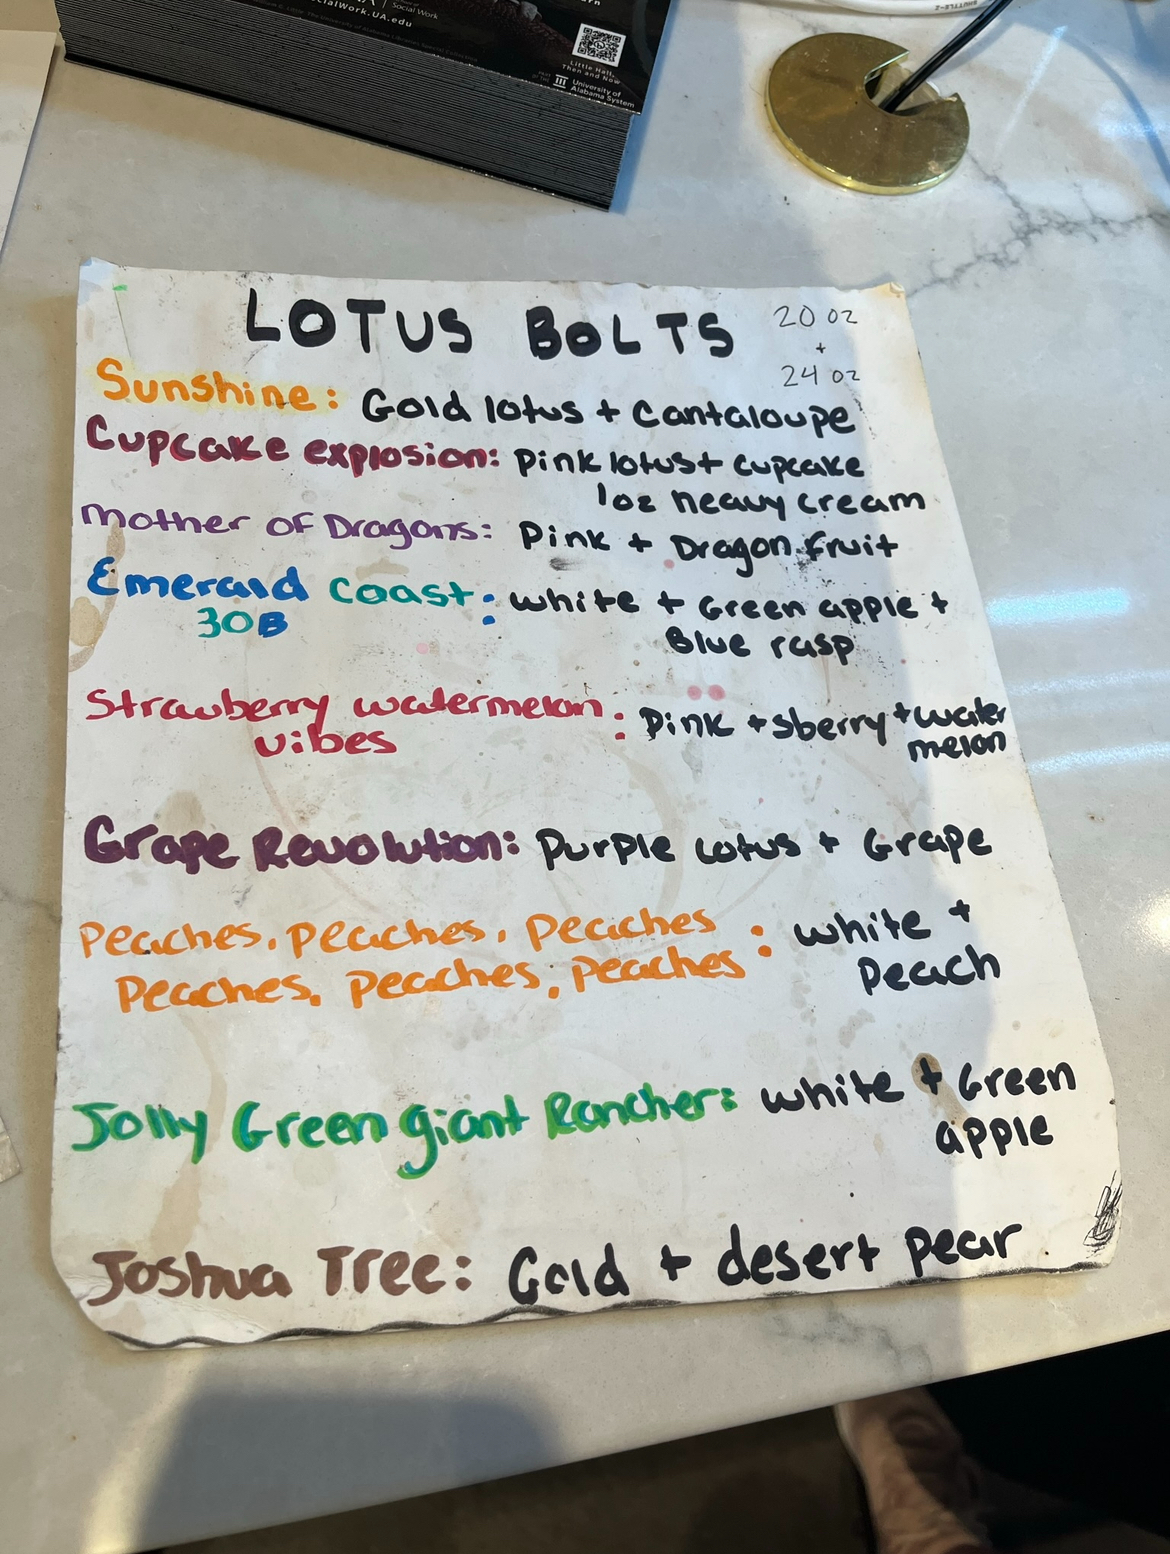 Social Work
cialWork.UA.edu
Little Hall,
Then and Now
University of
Alabama System
LOTUS BOLTS 20 oz
+
24 oz
Sunshine: Gold lotus + Cantaloupe
Cupcake explosion: Pink lotus + cupcake
1oz heavy cream
Mother of Dragons: Pink + Dragon fruit
Emerald Coast: white + Green apple +
30B Blue rasp
Strawberry watermelon: Pink + sberry + water
vibes melon
Grape Revolution: Purple Lotus + Grape
Peaches, peaches, peaches : white +
Peaches, Peaches, peaches Peach
Jolly Green giant Rancher: white + Green
apple
Joshua Tree: Gold + desert pear